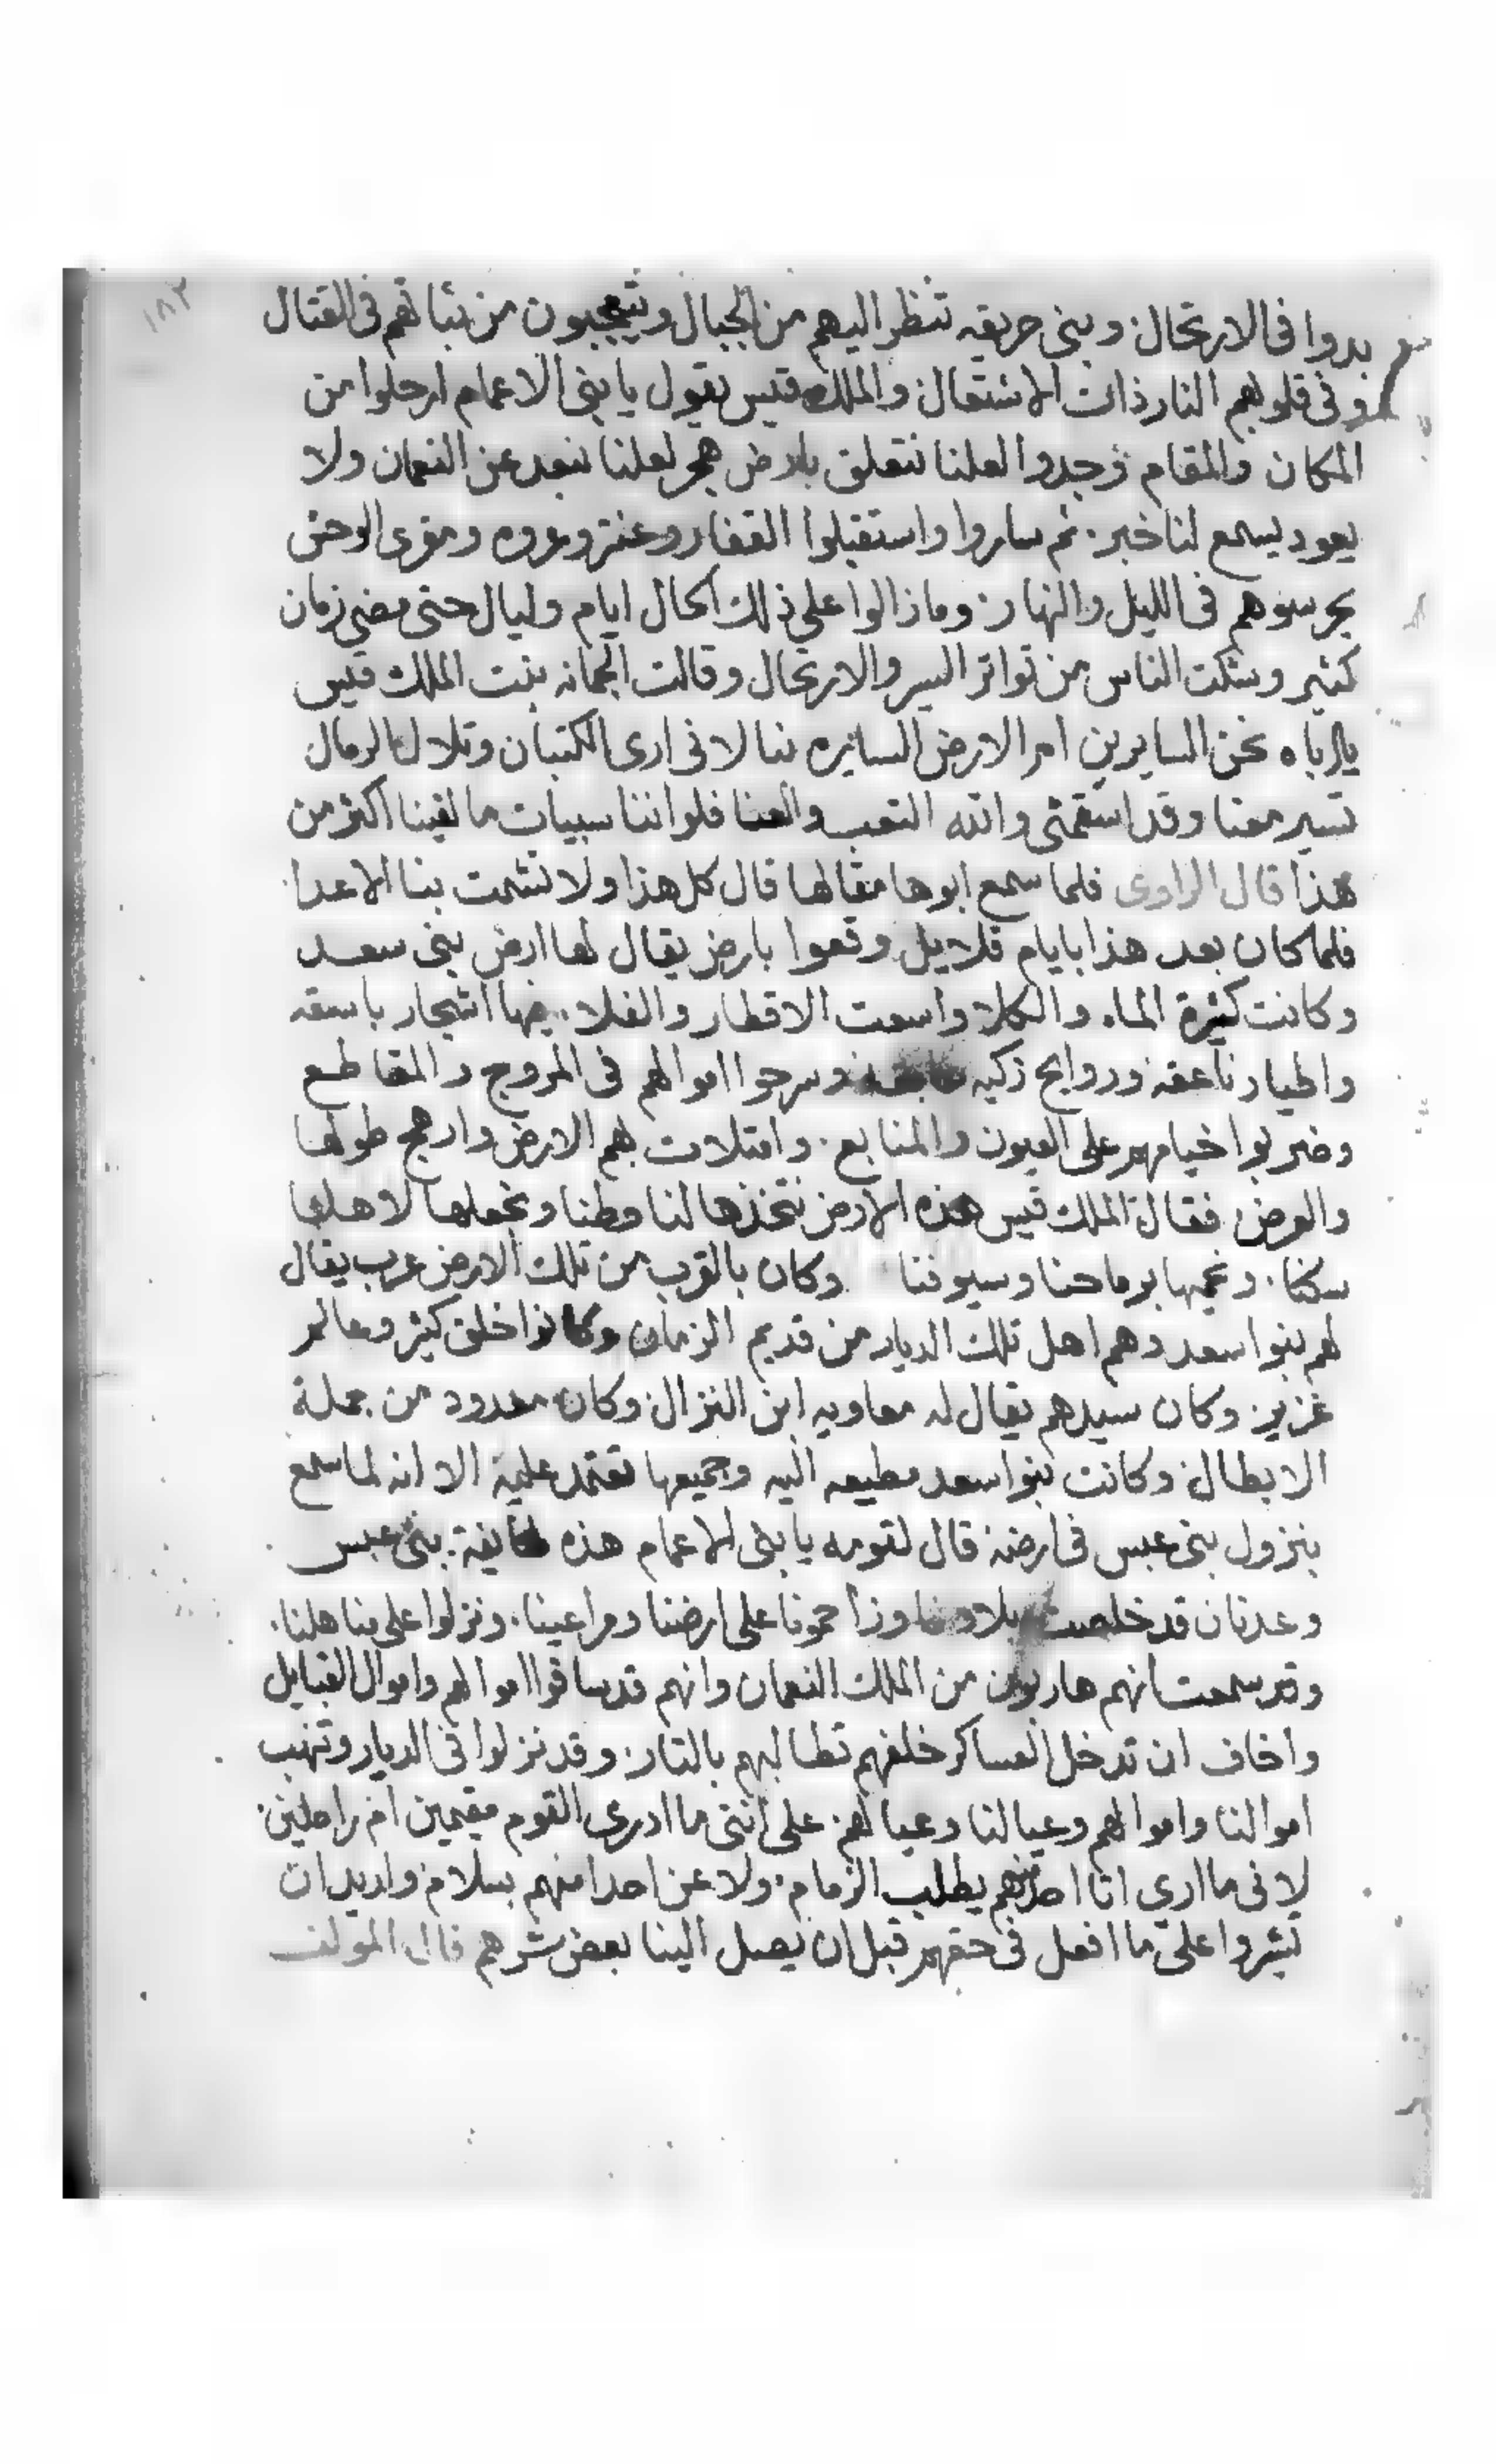 ١٨٢
بدوا فى الارتحال وبنى حريقه تنظر اليهم من الجبال ويتعجبون من ثباتهم فى القتال
وفى قلوبهم النار ذات الاشتعال والملك قيس يقول يا بنى الاعمام ارحلوا من
المكان والمقام وجدوا لعلنا نتعلق بارض هجر لعلنا نبعد عن النعمان ولا
يعود يسمع لنا خبر ثم ساروا واستقبلوا القفار وعنتر وعروه ومقرى الوحش
يحرسوهم فى الليل والنهار وما زالوا على ذلك الحال ايام وليال حتى مضى زمان
كثير وشكت الناس من تواتر السير والارتحال وقالت الجمانه بنت الملك قيس
يا اباه نحن السايرين ام الارض السايره بنا لانى ارى الكتبان وتلال الرمال
تسير معنا وقد اسقمنى والله التعب والعنا فلو اننا سبيات ما لقينا اكثر من
هذا قال الراوى فلما سمع ابوها مقالها قال كل هذا ولا تشمت بنا الاعدا
فلما كان بعد هذا بايام قلايل وقعوا بارض يقال لها ارض بنى سعد
وكانت كثيرة الماء والكلا واسعت الاقطار والفلا فيها اشجار باسقه
واطيار ناعقه وروايح زكيه وسرحوا اموالهم فى المروج والمقاطع
وضربوا خيامهم على العيون والمنابع وامتلات بهم الارض وارهج طولها
والعرض فقال الملك قيس هذه الارض نتخذها لنا وطنا ونجعلها لاهلها
سكنا ونحميها برماحنا وسيوفنا وكان بالقرب من تلك الارض عرب يقال
لهم بنوا سعد وهم اهل تلك الديار من قديم الزمان وكانوا خلق كثير وعالم
غزير وكان سيدهم يقال له معاويه ابن النزال وكان معدود من جملة
الابطال وكانت بنوا سعد مطيعه اليه وجميعها تعتمد عليه الا انه لما سمع
بنزول بنى عبس فى ارضه قال لقومه يا بنى الاعمام هذه طايفة بنى عبس
وعدنان قد خلصت بلادنا وزاحمونا على ارضنا ومراعينا ونزلوا على مناهلنا
وقد سمعت انهم هاربون من الملك النعمان وانهم قد ساقوا اموالهم واموال القبايل
واخاف ان تدخل العساكر خلفهم تطالبهم بالتار وقد نزلوا فى الديار وتنهب
اموالنا واموالهم وعيالنا وعيالهم على اننى ما ادرى القوم مقيمين ام راحلين
لانى ما ارى اتا احد منهم يطلب الزمام ولا عن احدا منهم بسلام واريد ان
تشروا على ما افعل فى حقهم قبل ان يصل الينا بعض شرهم قال المولف